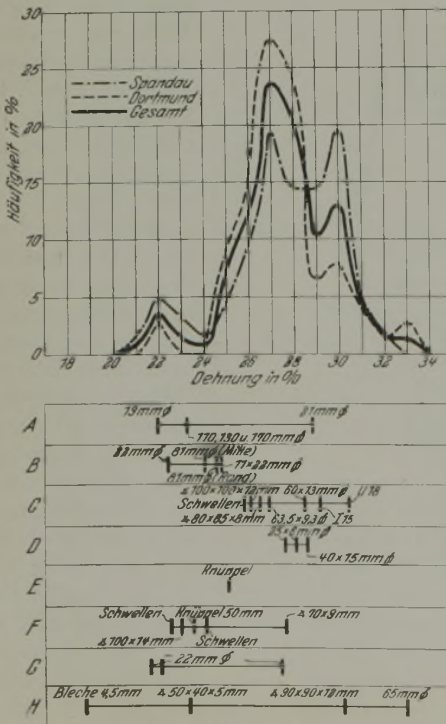 30
25
20
15
10
5
0
Häufigkeit in %
Spandau
Dortmund
Gesamt
18 20 22 24 26 28 30 32 34
Dehnung in %
A 19mm ϕ 110,130 u. 170mm ϕ 21mm ϕ
B 22mm ϕ 81mm ϕ (Mitte) 81mm ϕ (Rand) 11×22mm ϕ
C Schwellen 100×100×12mm 60×13mm ⊔18
80×65×8mm 63,5×9,3 ϕ I 15
D 25×8mm ϕ
40×15mm ϕ
E Knüppel
F Schwellen Knüppel 50mm 70×9mm
100×14mm Schwellen
G 22mm ϕ
H Bleche 4,5mm 50×40×5mm 90×90×12mm 65mm ϕ